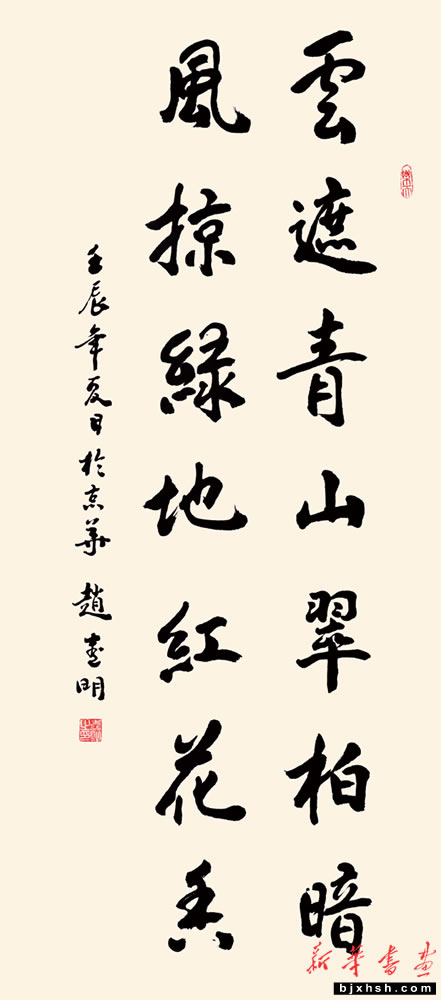 雲遮青山翠柏暗
風掠緑地紅花香
壬辰年夏日於京華 趙春明
新華書畫
bjxhsh.com